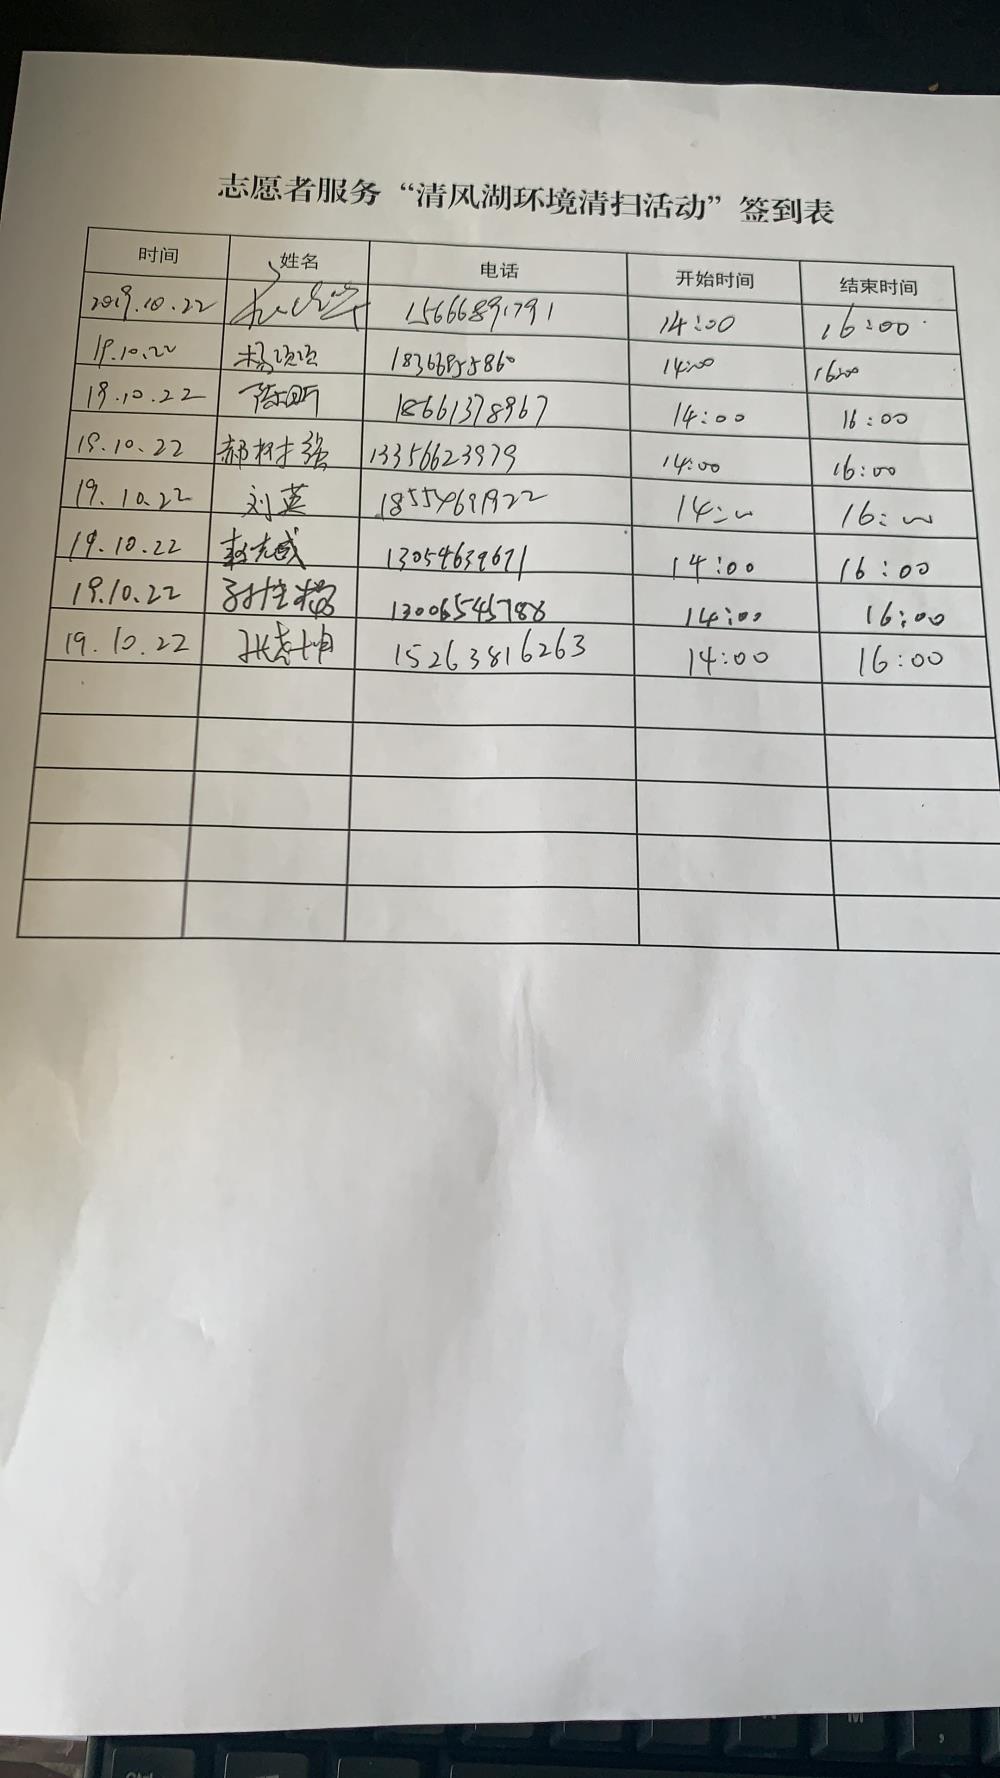 志愿者服务“清风湖环境清扫活动”签到表
时间 姓名 电话 开始时间 结束时间
2019.10.22 15666891791 14:00 16:00
19.10.22 18366855860 14:00 16:00
19.10.22 陈昕 18661378967 14:00 16:00
19.10.22 郝树强 13356623979 14:00 16:00
19.10.22 刘英 18554691922 14:00 16:00
19.10.22 13054639671 14:00 16:00
19.10.22 13006545788 14:00 16:00
19.10.22 张志坤 15263816263 14:00 16:00